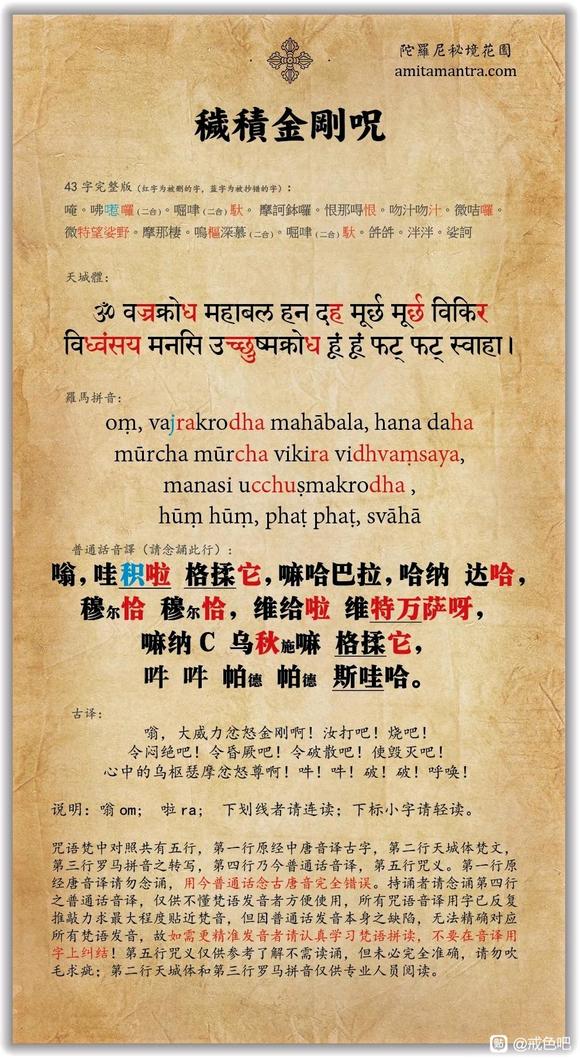 陀羅尼秘境花園
amitamantra.com
穢積金剛呪
43 字完整版（红字为被删的字，蓝字为被抄错的字）：
唵。咈嗯囉(二合)。啒𠺁(二合)馱。摩訶鉢囉。恨那㖶恨。吻汁吻汁。微咭囉。
微特望娑野。摩那棲。嗚樞深慕(二合)。啒𠺁(二合)馱。𤙖𤙖。泮泮。娑訶
天城體：
ॐ वज्रक्रोध महाबल हन दह मूर्छ मूर्छ विकिर
विध्वंसय मनसि उच्छुष्मक्रोध हूं हूं फट् फट् स्वाहा।
羅馬拼音：
oṃ, vajrakrodha mahābala, hana daha
mūrcha mūrcha vikira vidhvaṃsaya,
manasi ucchuṣmakrodha ,
hūṃ hūṃ, phaṭ phaṭ, svāhā
普通話音譯（請念誦此行）：
嗡，哇积啦 格揉它，嘛哈巴拉，哈纳 达哈，
穆尔恰 穆尔恰，维给啦 维特万萨呀，
嘛纳 C 乌秋施嘛 格揉它，
吽 吽 帕德 帕德 斯哇哈。
古译：
嗡，大威力忿怒金刚啊！汝打吧！烧吧！
令闷绝吧！令昏厥吧！令破散吧！使毁灭吧！
心中的乌枢瑟摩忿怒尊啊！吽！吽！破！破！呼唤！
说明：嗡 om； 啦 ra； 下划线者请连读；下标小字请轻读。
咒语梵中对照共有五行，第一行原经中唐音译古字，第二行天城体梵文，
第三行罗马拼音之转写，第四行乃今普通话音译，第五行咒义。第一行原
经唐音译请勿念诵，用今普通话念古唐音完全错误。持诵者请念诵第四行
之普通话音译，仅供不懂梵语发音者方便使用，所有咒语音译用字已反复
推敲力求最大程度贴近梵音，但因普通话发音本身之缺陷，无法精确对应
所有梵语发音，故如需更精准发音者请认真学习梵语拼读，不要在音译用
字上纠结！第五行咒义仅供参考了解不需读诵，但未必完全准确，请勿吹
毛求疵；第二行天城体和第三行罗马拼音仅供专业人员阅读。
贴 @戒色吧